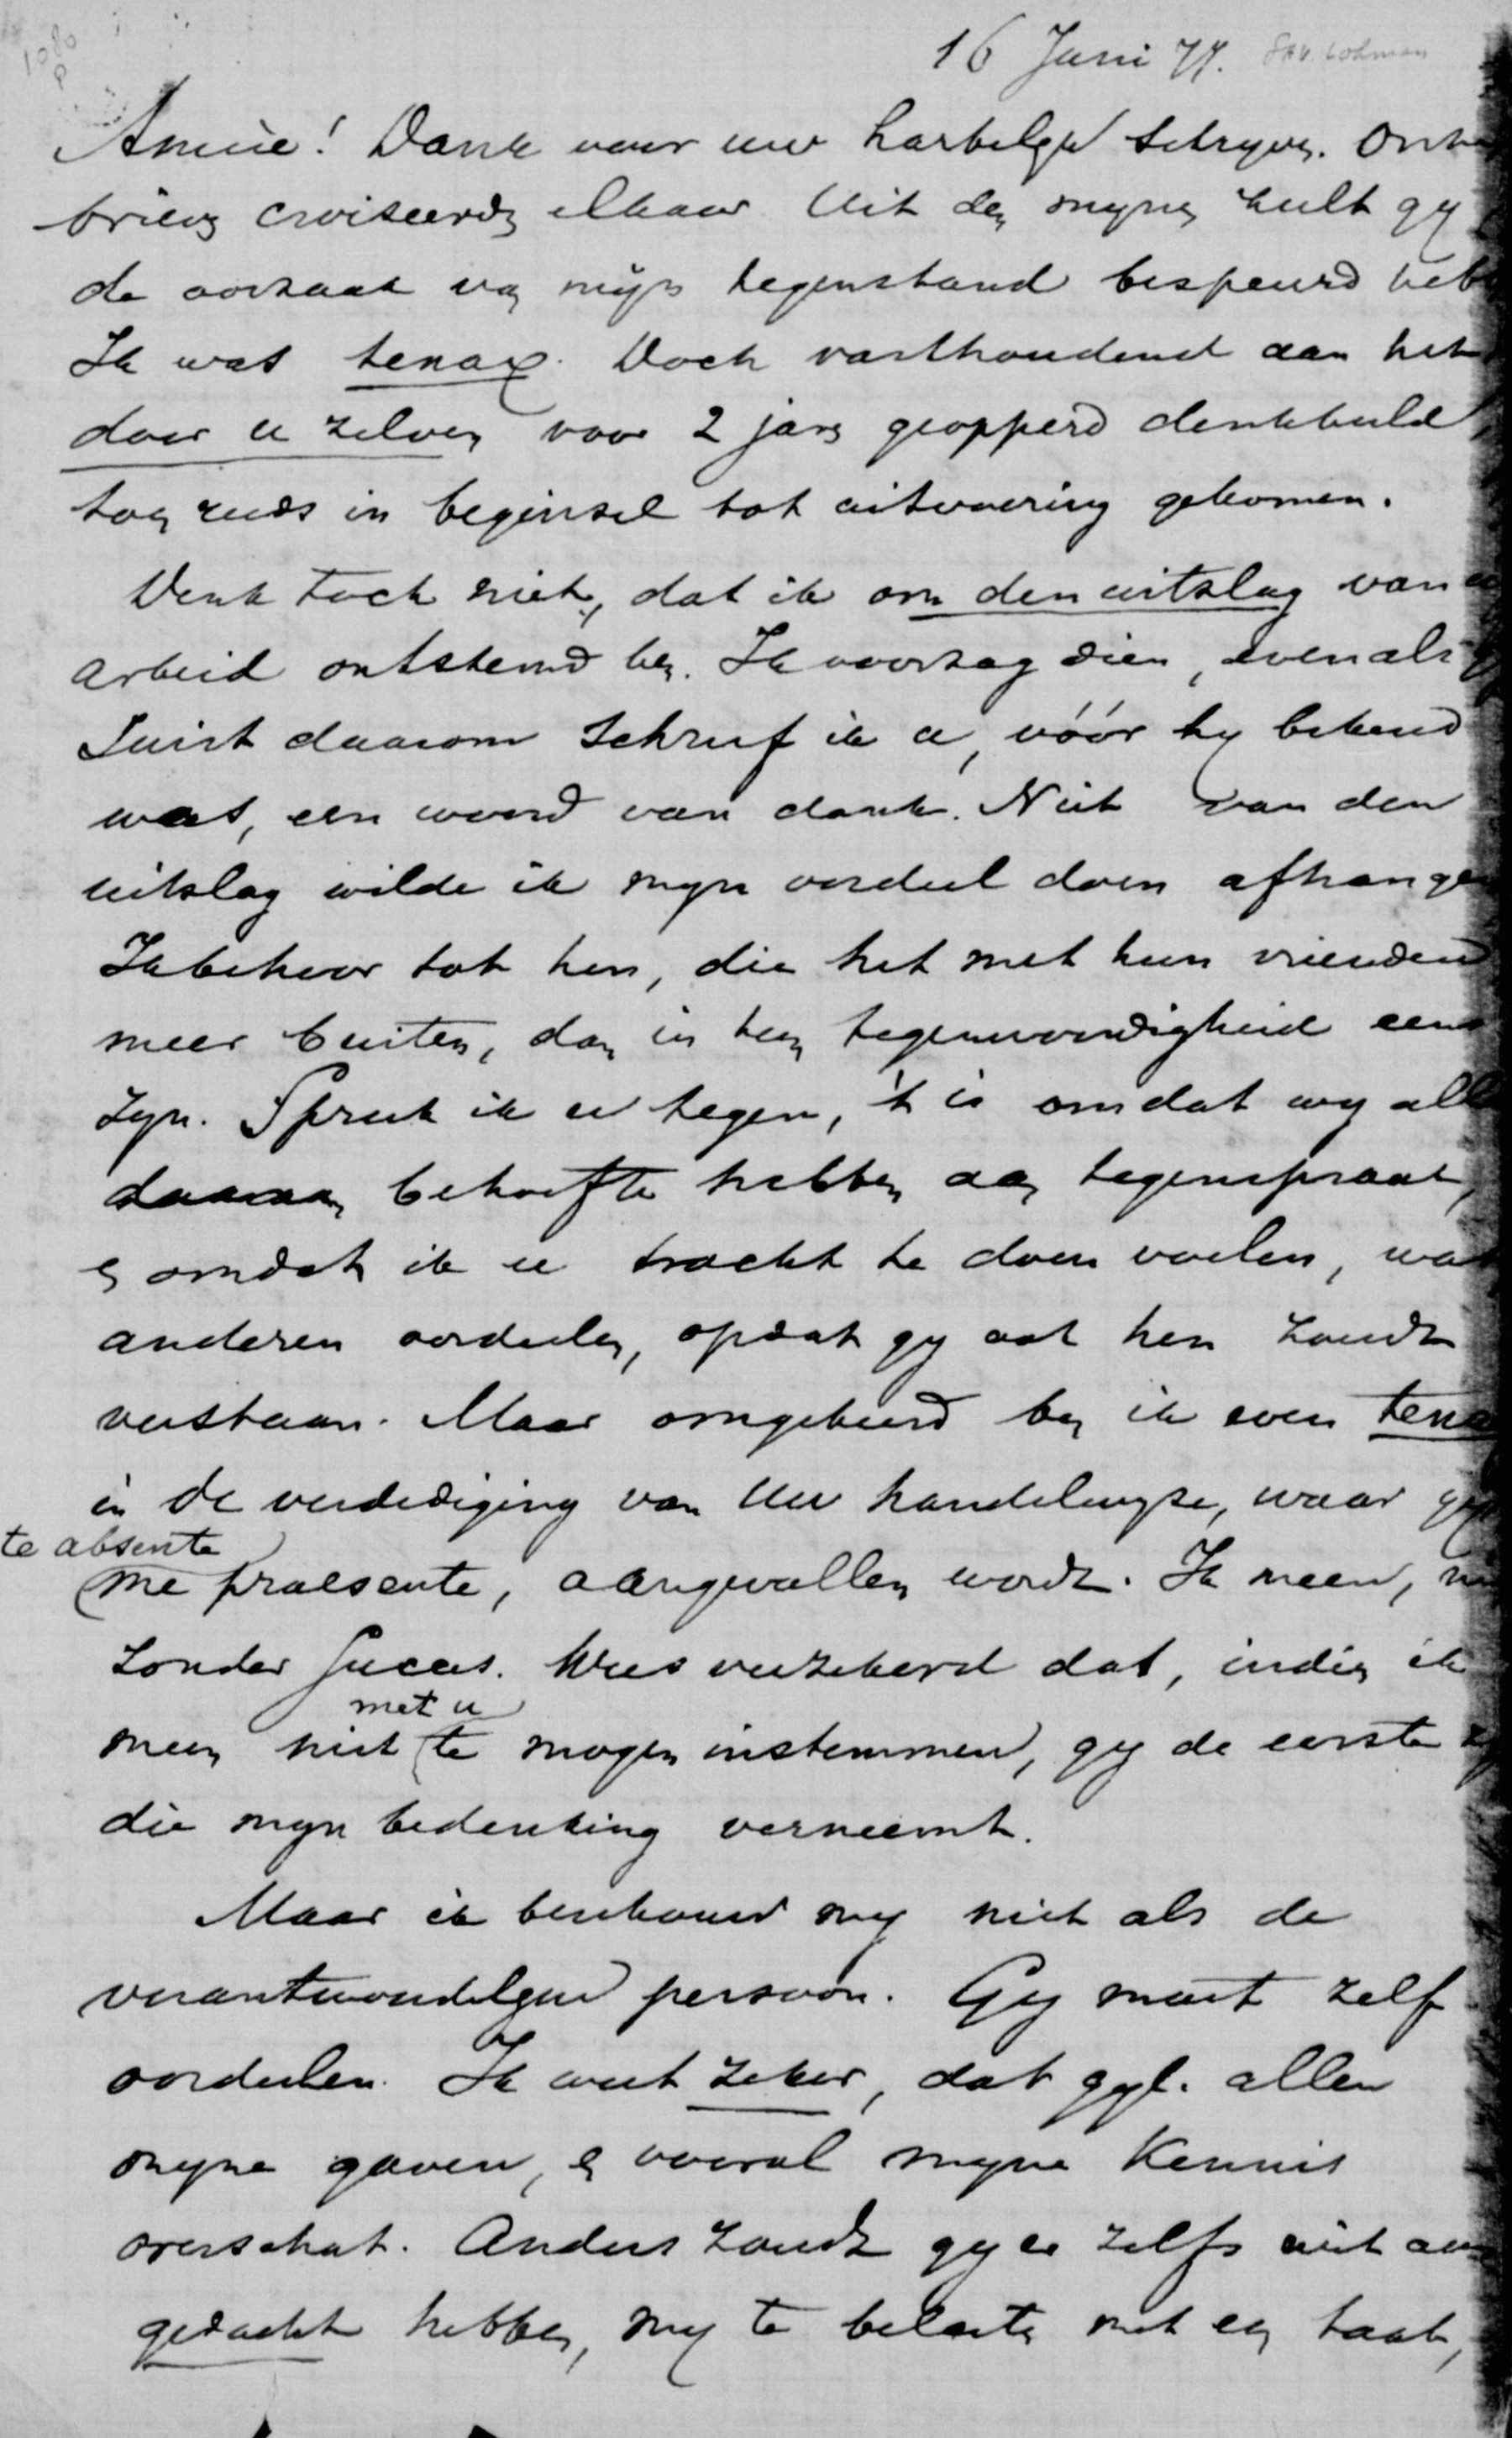 1080
P
16 Juni 77. S.A.v. Lohman
Amice! Dank voor uw hartelijk schrijven. Onze
brieven croiseerden elkaar. Uit den mijnen zult gij
de oorzaak van mijn tegenstand bespeurd heb
Ik was tenax. Doch vasthoudend aan het
door u zelven voor 2 jaren geopperd denkbeeld,
toen reeds in beginsel tot uitvoering gekomen.
Denk toch niet, dat ik om den uitslag van
arbeid ontstemd ben. Ik voorzag dien, evenals
Juist daarom schreef ik u, vóór hij bekend
was, een woord van dank. Niet van den
uitslag wilde ik mijn oordeel doen afhangen
Ik behoor tot hen, die het met hun vrienden
meer buiten, dan in hun tegenwoordigheid eens
zijn. Spreek ik u tegen, 't is omdat wij alle
behoefte hebben aan tegenspraak,
en omdat ik u tracht te doen voelen, wat
anderen oordeelen, opdat gij ook hen zoudt
verstaan. Maar omgekeerd ben ik even tena
in de verdediging van Uw handelwijze, waar gij
te absente
me praesente, aangevallen wordt. Ik meen, n
zonder succes. Wees verzekerd dat, indien ik
met u
meen niet te mogen instemmen, gij de eerste z
die mijn bedenking verneemt.
Maar ik beschouw mij niet als de
verantwoordelijke persoon. Gij moet zelf
oordeelen. Ik weet zeker, dat gijl. allen
mijne gaven, en vooral mijne kennis
overschat. Anders zoudt gij er zelfs niet aan
gedacht hebben, mij te belasten met een taak,